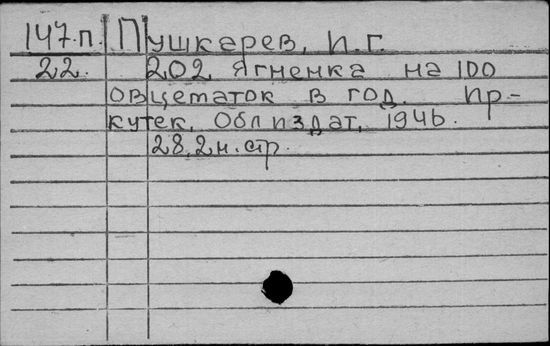 147.п. Пушкарев, И.Г.
22. 202 ягненка на 100
овцематок в год. Ир-
кутск, Облиздат, 1946.
28, 2 н. стр.